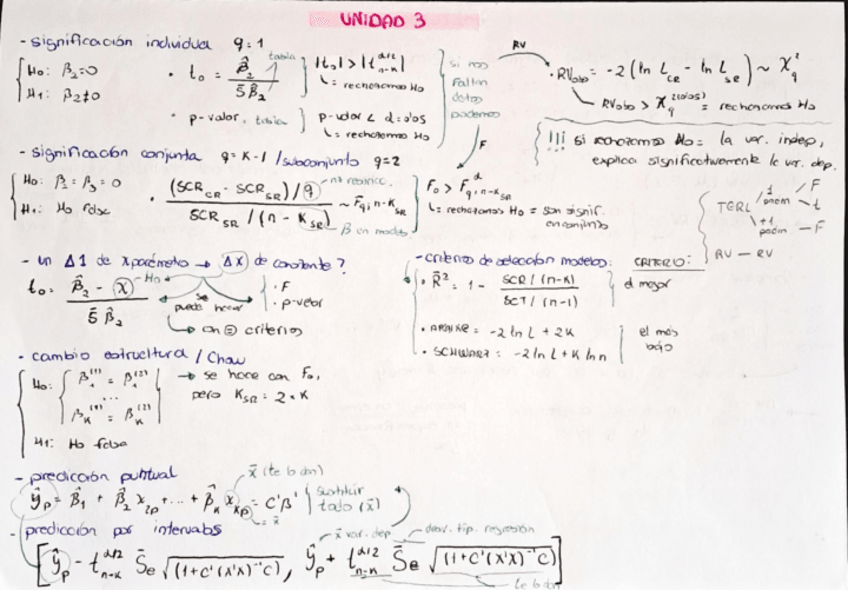 UNIDAD 3
- significación individual q=1
H₀: β₂=0
H₁: β₂≠0
· t₀ = β̂₂ / S̄β̂₂
tabla
|t₀| > |t α/2 n-k|
↳ = rechazamos H₀
· p-valor, tabla
p-valor < α=0'05
↳ = rechazamos H₀
si nos
faltan
datos
podemos
RV
F
· RVobs = -2 (ln L CR - ln L SR) ~ χ² q
↳ RVobs > χ q ²(0'05) = rechazamos H₀
!!! si rechazamos H₀ = la var. indep,
explica significativamente la var. dep.
- significación conjunta q=k-1 / subconjunto q=2
H₀: β₂=β₃=0
H₁: H₀ falsa
· (SCR CR - SCR SR)/q / SCR SR / (n - K SR) ~ F q; n-K SR
nº restricc.
β en modelo
F₀ > F α q; n-K SR
↳ = rechazamos H₀ = son signif.
en conjunto
CRITERIO:
TCRL
1 param
F
t
+1 param
F
RV — RV
- un Δ1 de x parámetro → Δx de constante?
t₀ = β̂₂ - x / S̄β̂₂
H₀
se
puede hacer
· F
· p-valor
↳ con = criterios
- criterios de selección modelos:
· R̄² = 1 - SCR/(n-K) / SCT/(n-1)
el mayor
· AKAIKE = -2 ln L + 2K
· SCHWARZ = -2 ln L + K ln n
el más
bajo
- cambio estructura / Chow
H₀: β₁⁽¹⁾ = β₁⁽²⁾
β K ⁽¹⁾ = β K ⁽²⁾
H₁: H₀ falsa
→ se hace con F₀,
pero K SR = 2·K
- predicción puntual
x̄ (te lo dan)
ŷp = β̂₁ + β̂₂ x₂p +...+ β̂K xKp = C'β'
= x̄
sustituir
todo (x̄)
- predicción por intervalos
x̄ var. dep
desv. típ. regresión
[ŷp - t α/2 n-k S̄e √(1+C'(X'X)⁻¹C), ŷp + t α/2 n-k S̄e √(1+C'(X'X)⁻¹C)]
te lo dan